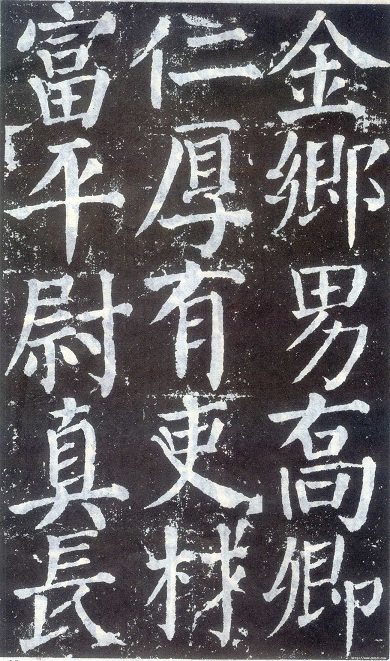 金鄉男喬卿
仁厚有吏材
富平尉真長